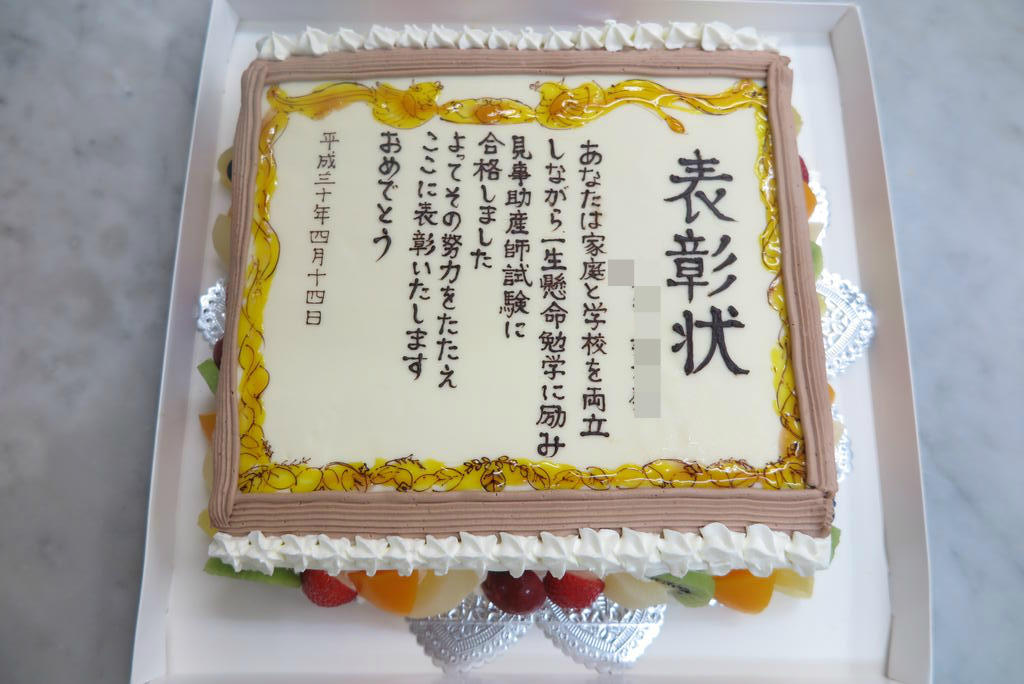 表彰状
あなたは家庭と学校を両立
しながら一生懸命勉学に励み
見事助産師試験に
合格しました
よってその努力をたたえ
ここに表彰いたします
おめでとう
平成三十年四月十四日